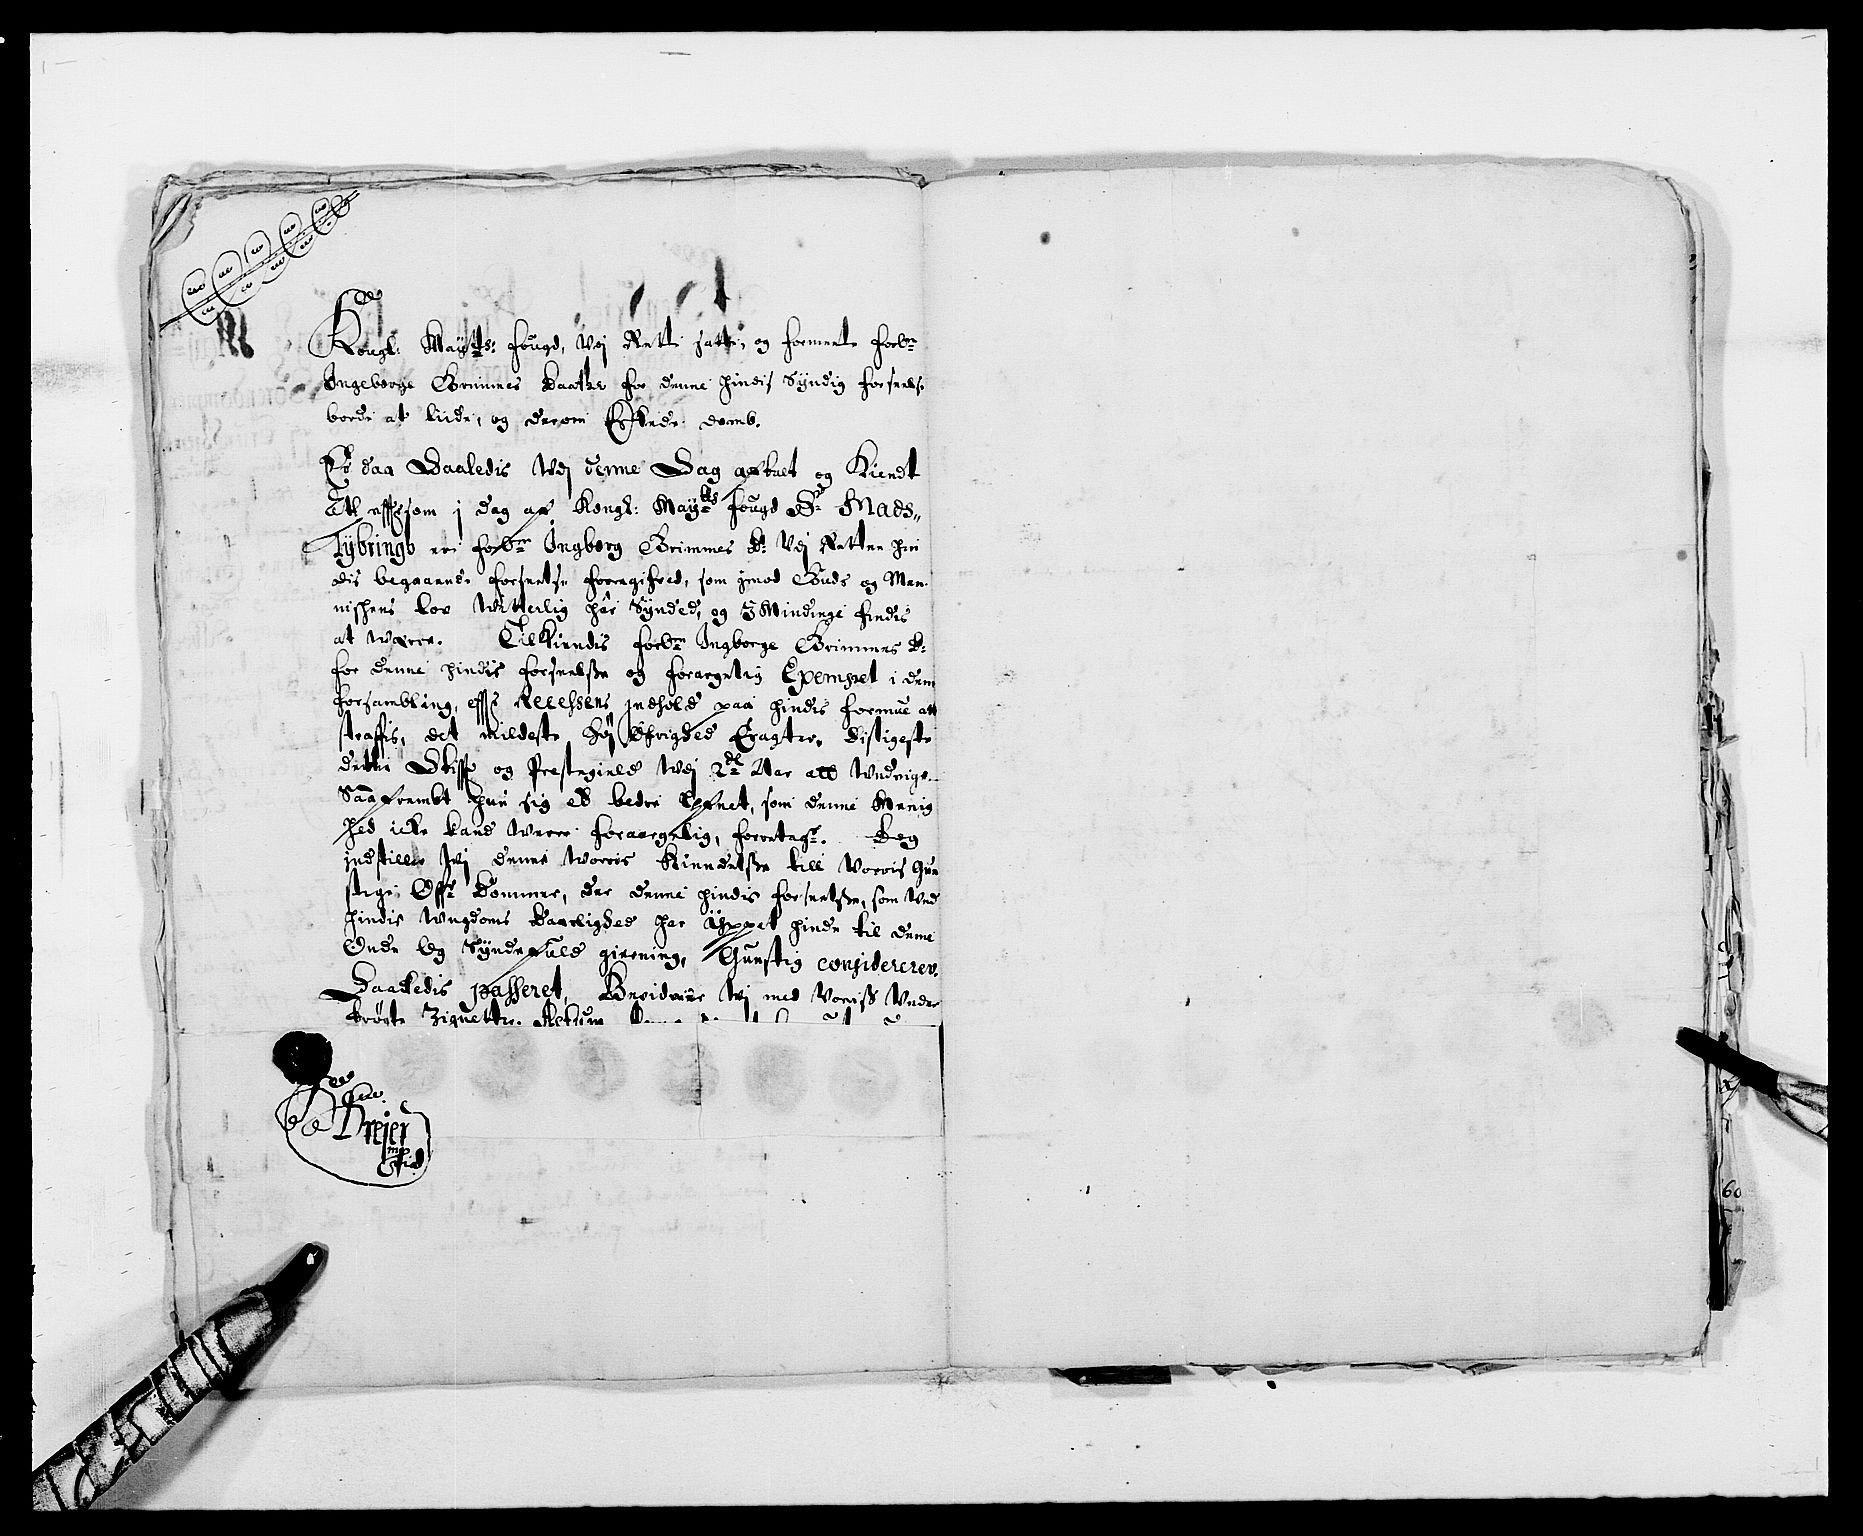 Kongl: Maÿtts: fougd, wej Rette satte, og formente forbe:
Ingeborge Grimmes Daatter for denne hindis Sÿndig forseelse
borde at liide, og derom Eskede domb.
Da Saaledis wej denne Dag afsagt og Kiendt
At effttersom j dag af Kongl: Maÿtts fougd Sr Mads
Tÿbringb er forbe: Ingborg Grimmes D: wej Retten hin
dis begaaende forseelse foregifved, som jmod Guds og Men
nischens lov witterlig har Sÿnded, og J Mindinge findis
at werre. Tilkiendis forbe: Ingborge Grimmes D:
for denne hindis forseelsse og forargelig Exempel i denne
forsambling, effter Recessens jndhold paa hindis formue att
straffis, det mildeste høj Øfrighed Eragter. Disligeste
dette Skiff og Prestegield wej 2de Aar att Undvige.
Saafrembt hun sig ej bedre hafver, som denne Menig
hed icke kand werre foraargelig, foretager. Dog
jndstiller wj denne worris Kiendelsse till worris Gun
stige Offr Dommer, der denne hindis forseelsse, som wed
hindis Ungdoms Daarlighed har ÿppet hinde til denne
Onde og Sÿndefuld gierning, Gunstig considererer.
Saaledis passeret, Bevidner wj med worriss Under
trögte Zignetter. Actum
Dreÿer
mp